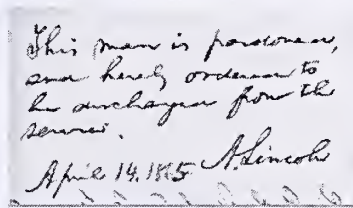 This man is pardoned,
and hereby ordered to
be discharged from the
service.
A. Lincoln
April 14, 1865